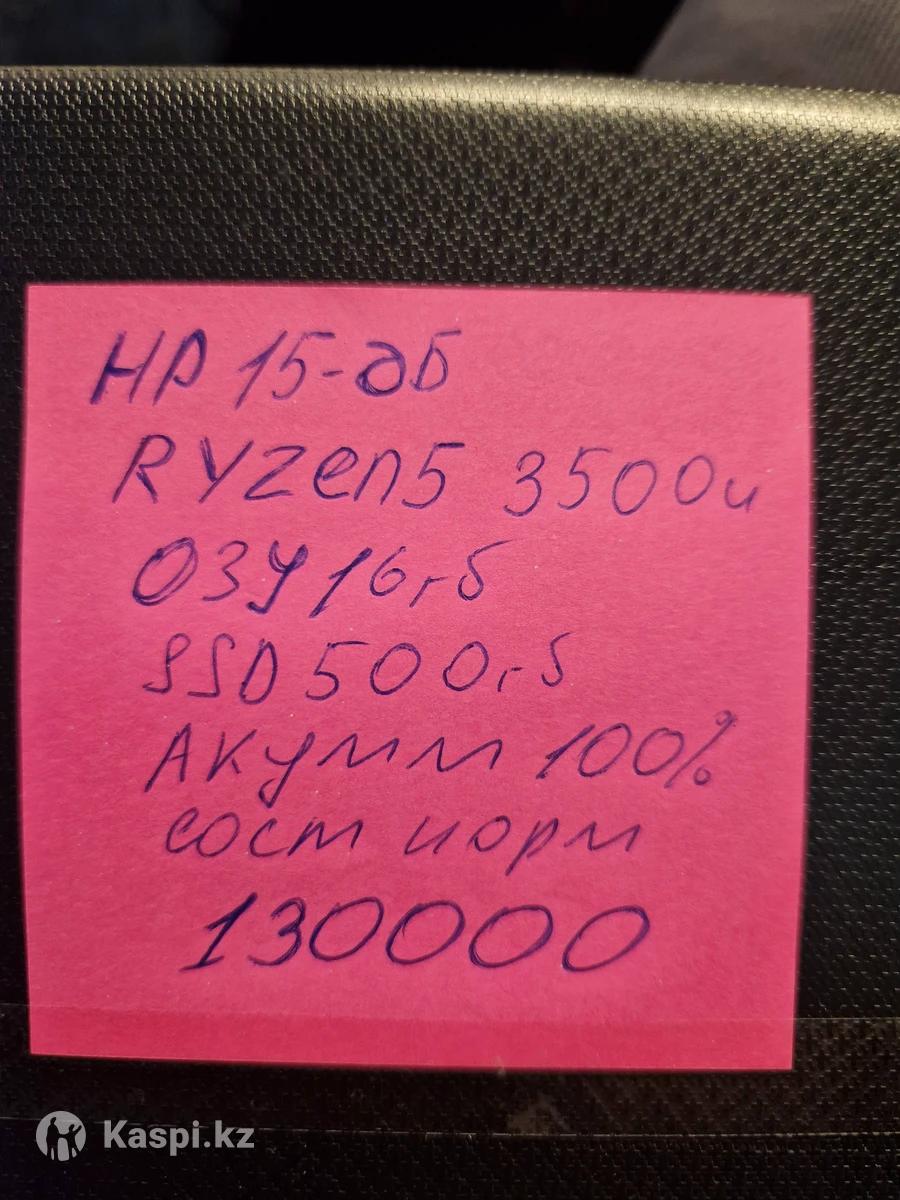 HP 15-дБ
RYZen5 3500u
ОЗУ 16гб
SSD 500гб
Акумм 100%
сост норм
130000
Kaspi.kz